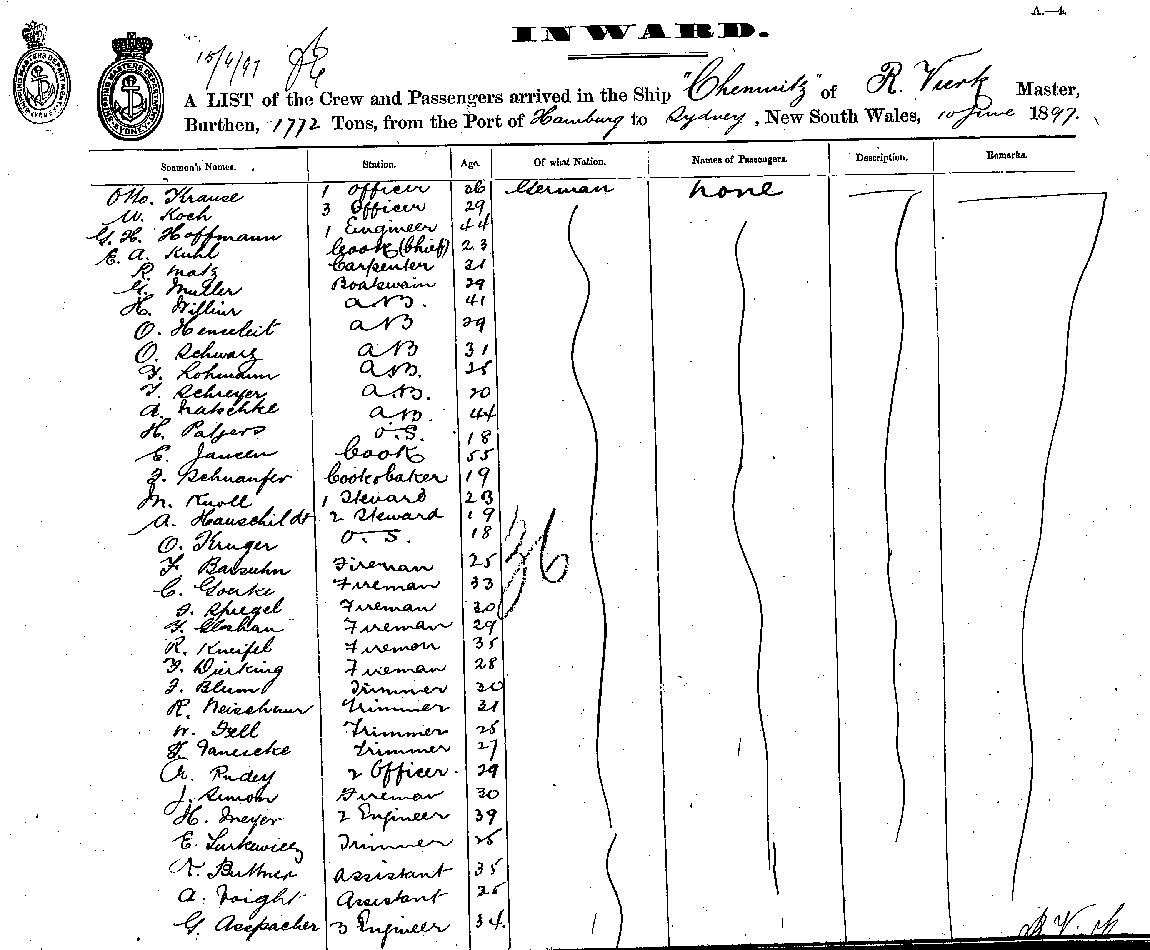 A.—4.
INWARD.
15/6/97
A LIST of the Crew and Passengers arrived in the Ship "Chemnitz" of R. Vierk Master,
Burthen, 1772 Tons, from the Port of Hamburg to Sydney, New South Wales, 10 June 1897.
Seamen's Names. Station. Age. Of what Nation. Names of Passengers. Description. Remarks.
Otto. Krause 1 Officer 26 German none
W. Koch 3 Officer 29
G. H. Hoffmann 1 Engineer 44
E. A. Kuhl Cook (Chief) 23
R. Matz Carpenter 31
G. Muller Boatswain 29
H. AB. 41
O. Henseleit AB 29
O. Schwarz AB 31
F. Lohmann AB. 25
F. Schreyer A.B. 20
A. Natschke AB. 44
H. O.S. 18
E. Jansen Cook 55
F. Schnaufer Cook & baker 19
M. Knoll 1 Steward 23
A. Hauschildt 2 Steward 19
O. Kruger O.S. 18
36
F. Bassuhn Fireman 25
C. Goerke Fireman 33
F. Spiegel Fireman 30
F. Fireman 29
R. Kneifel Fireman 35
F. Wirking Fireman 28
F. Blum Trimmer 30
R. Trimmer 31
W. Fell Trimmer 25
F. Janeicke Trimmer 27
A. Pudey 2 Officer. 29
J. Simon Fireman 30
H. Meyer 2 Engineer 39
E. Trimmer 25
Buttner Assistant 35
A. Voight Assistant 25
G. Asspacher 3 Engineer 34.
R. Vierk